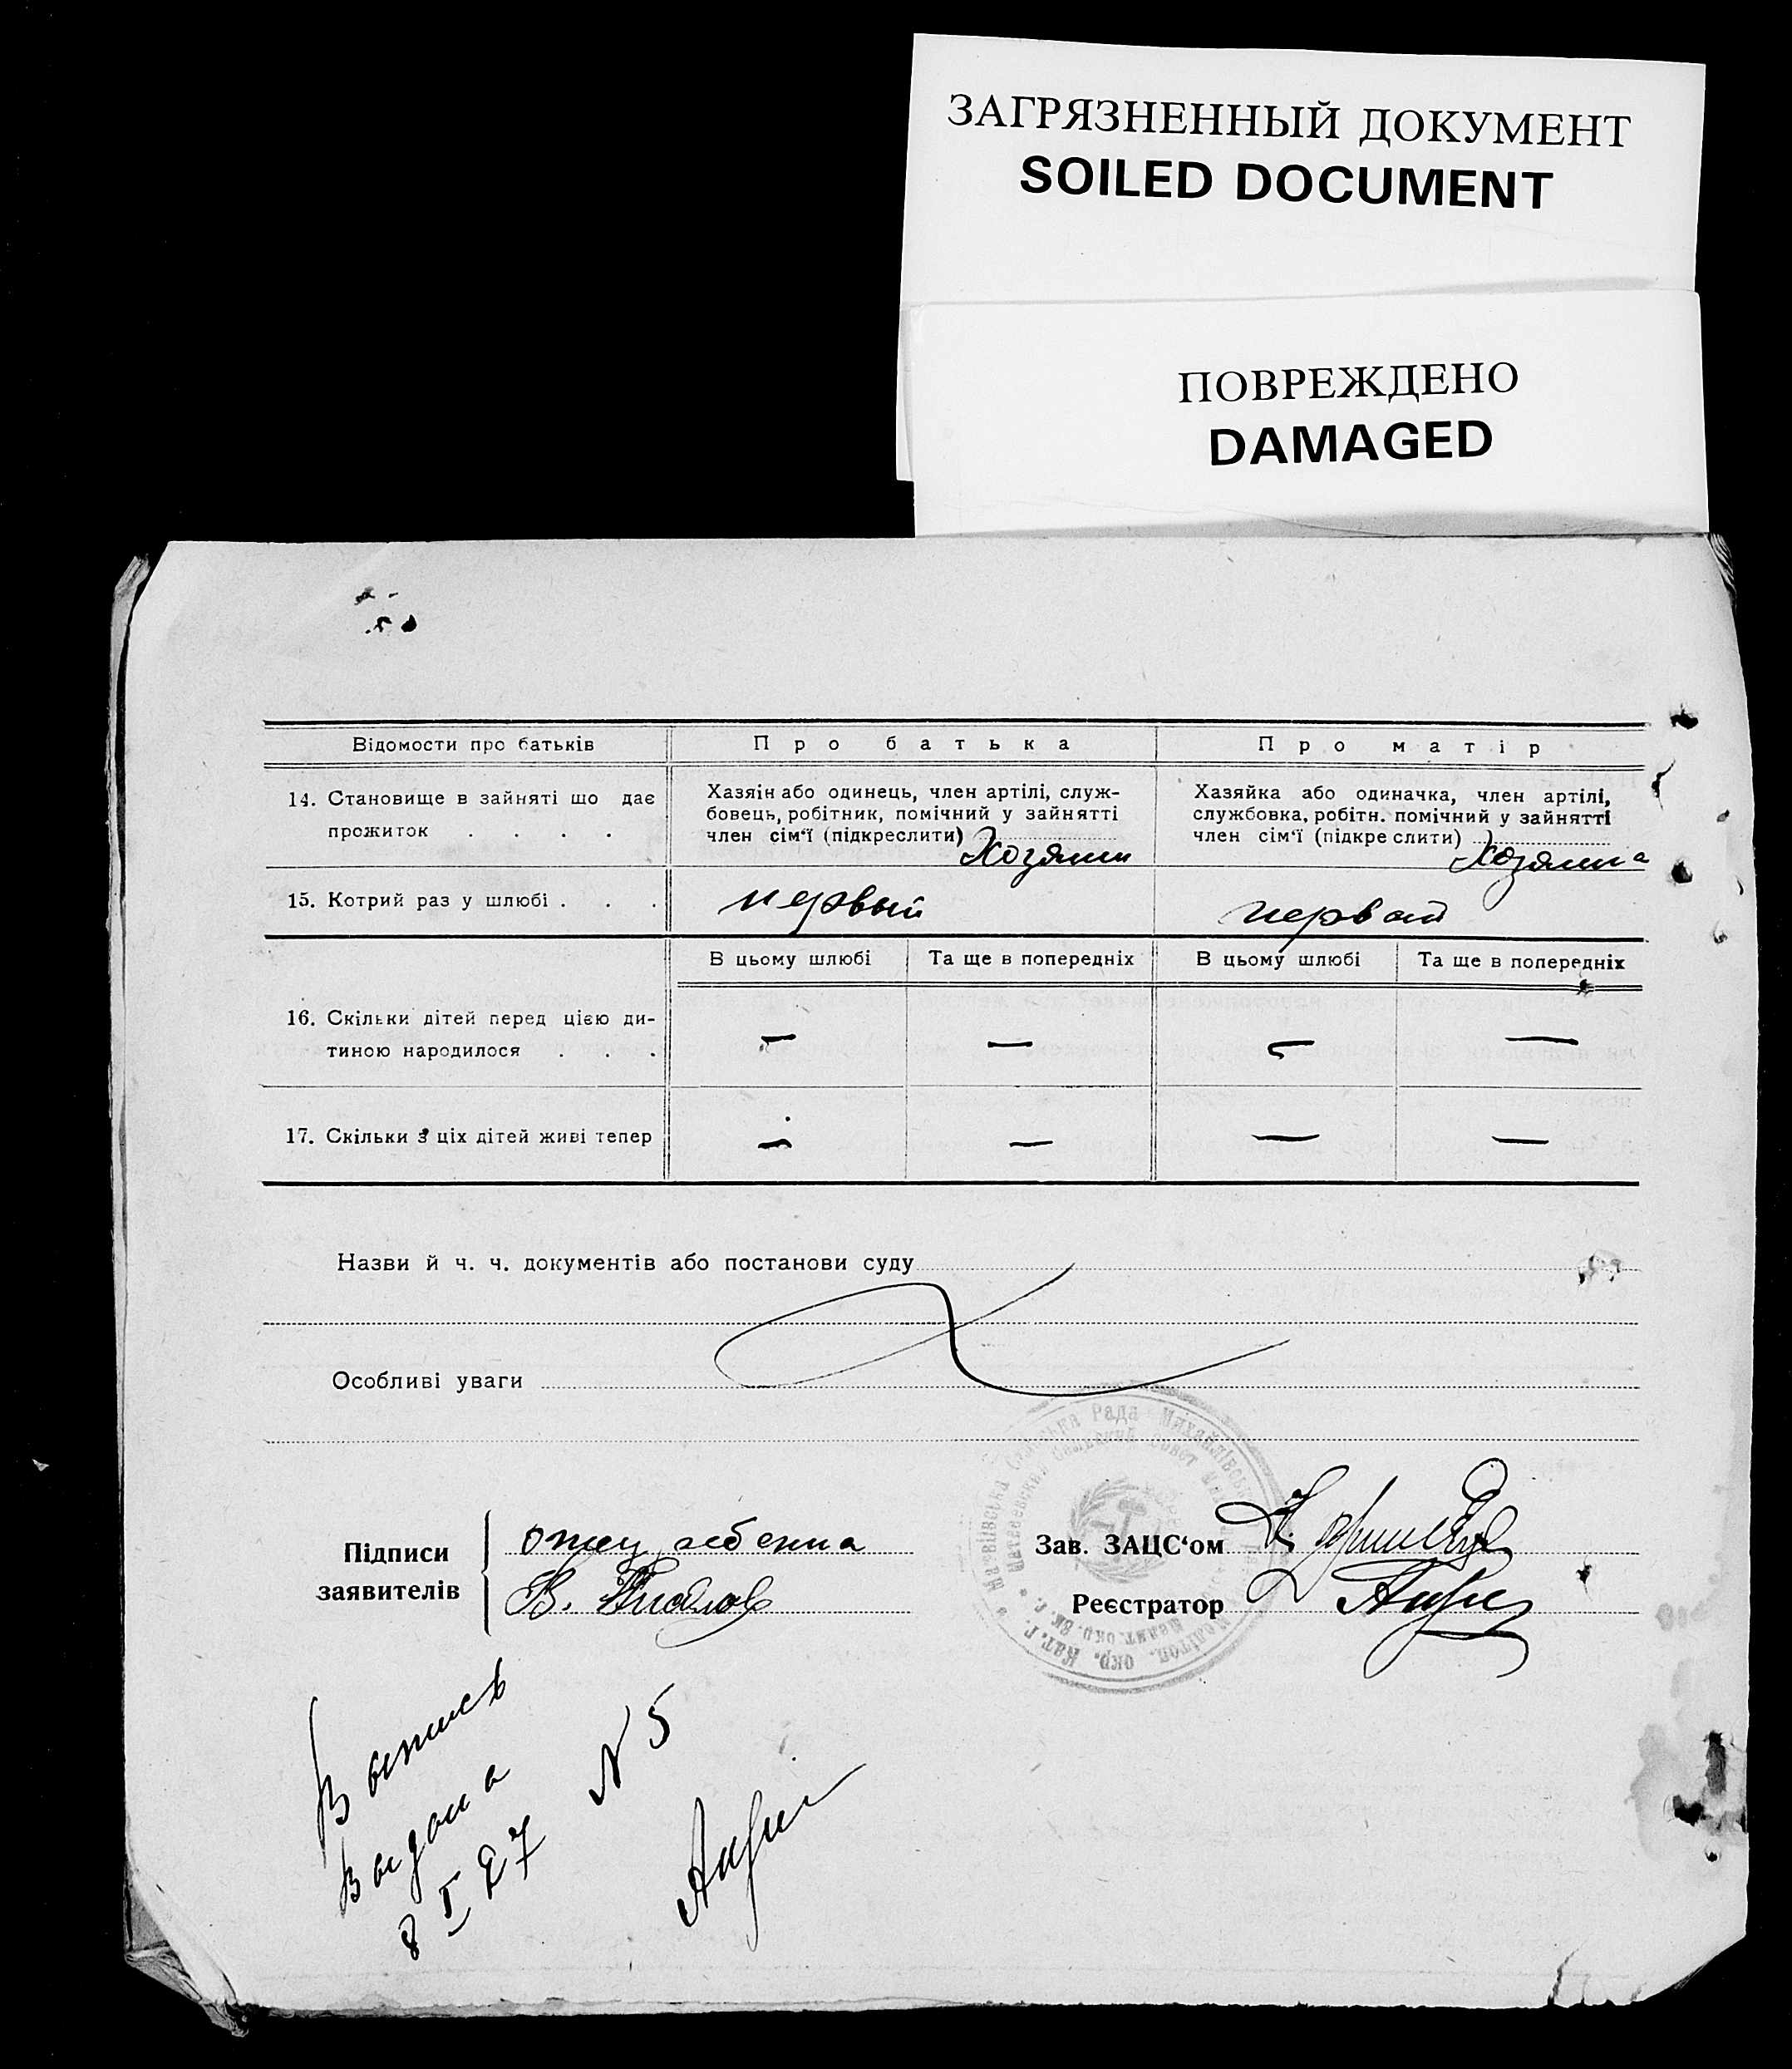 ЗАГРЯЗНЕННЫЙ ДОКУМЕНТ
SOILED DOCUMENT
ПОВРЕЖДЕНО
DAMAGED
Відомости про батьків
Про батька
Про матір
14. Становище в зайняті що дає
прожиток . . . .
Хазяін або одинець, член артілі, служ-
бовець, робітник, помічний у зайнятті
член сім‘ї (підкреслити)
Хозяин
Хазяйка або одиначка, член артілі,
службовка, робітн. помічний у зайнятті
член сім‘ї (підкреслити)
Хозяина
15. Котрий раз у шлюбі . . .
первый
первый
В цьому шлюбі
Та ще в попередніх
В цьому шлюбі
Та ще в попередніх
16. Скільки дітей перед цією ди-
тиною народилося . . .
— — — —
17. Скільки з ціх дітей живі тепер
— — — —
Назви й ч. ч. документів або постанови суду
Особливі уваги
Підписи
заявителів
отец ребенка
В.
Зав. ЗАЦС‘ом
Реєстратор
Матвіївська Сільська Рада Михайлівськ
Матвеевский Сельский Совет
Мелітоп. окр. Кат. г.
Мелит. окр. Ек. г.
Выпись
выдана
8 I 27
N 5